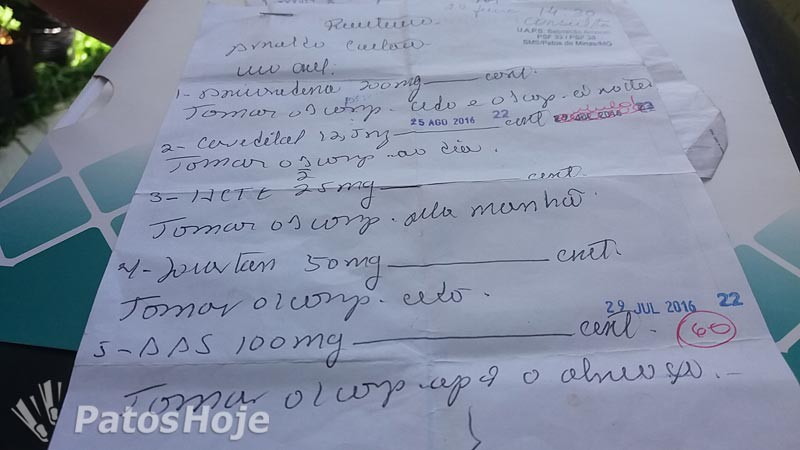 14:30
Consulta
U.A.P.S. Sebastião Amorim
SMS/Patos de Minas/MG
Arnaldo
uso oral.
1- 200mg cont.
Tomar 01 comp. cedo e 01 comp. à noite
25 AGO 2016 22
2- Carvedilol 12,5mg cont
Tomar 01 comp ao dia.
2
3- HCTZ 25mg cont.
Tomar 01 comp. pela manhã.
4- Losartan 50mg cont.
Tomar 01 comp. cedo.
29 JUL 2016 22
5- AAS 100mg cont. 60
Tomar 01 comp. após o almoço.
PatosHoje